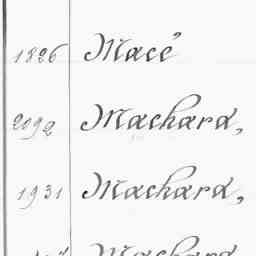 1826 Macé
2092 Machard,
1931 Machard,
Machard